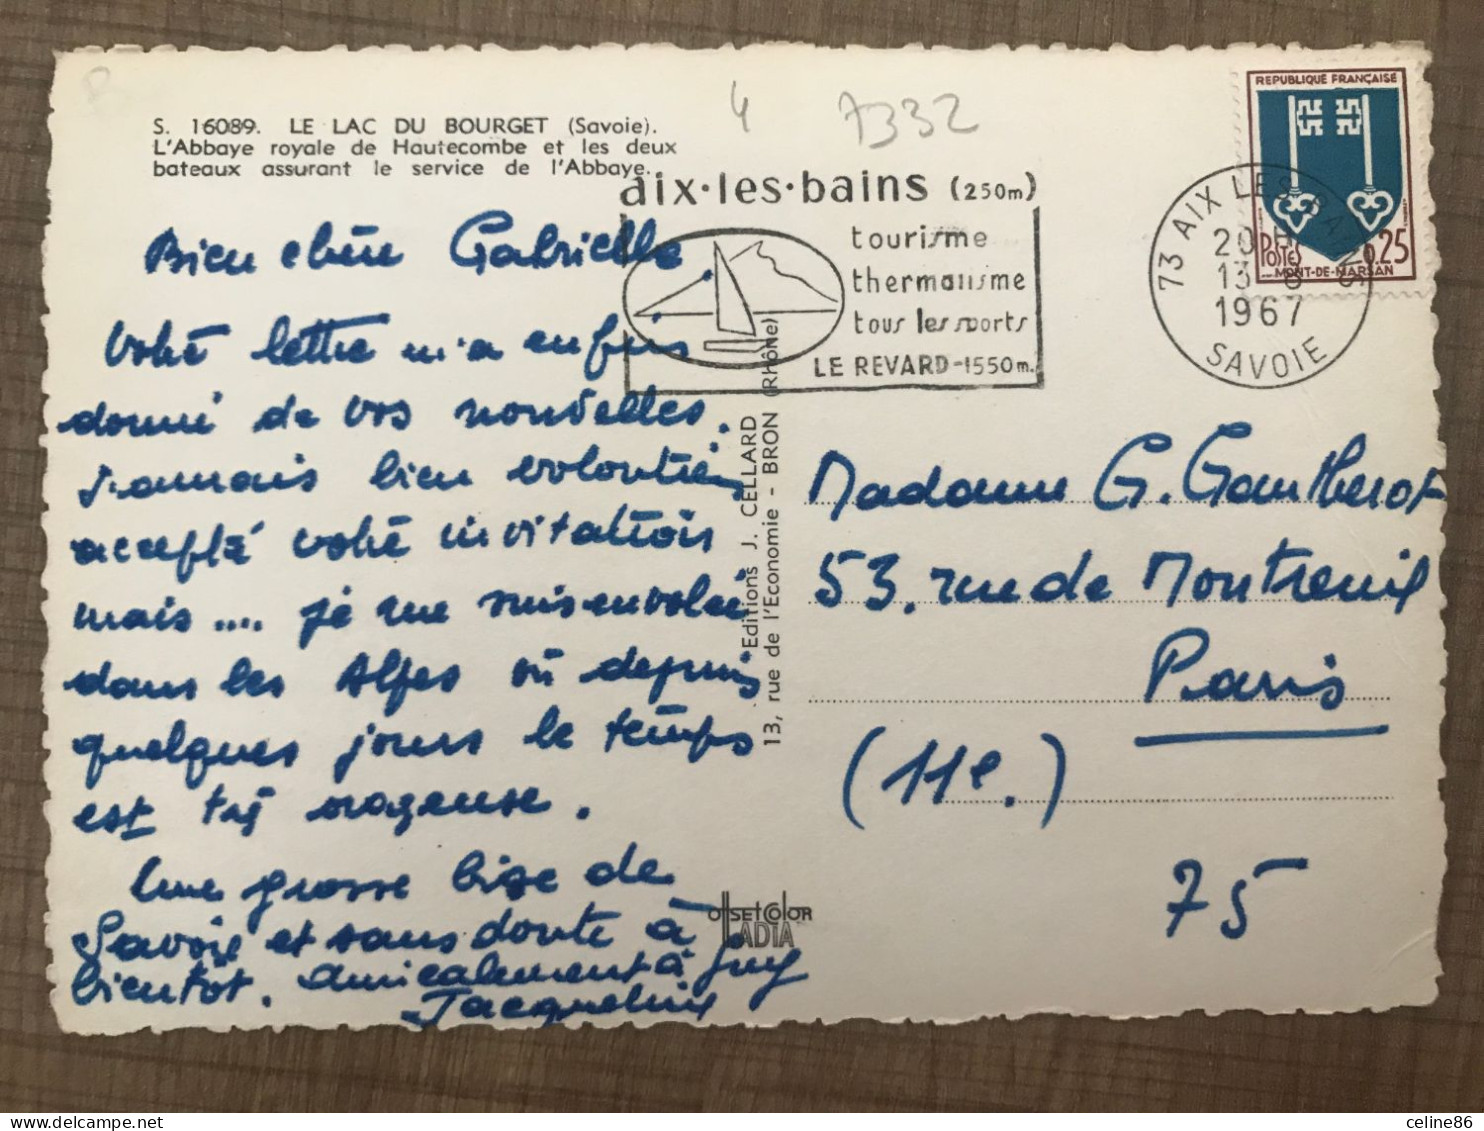 7332
4
S. 16089. LE LAC DU BOURGET (Savoie).
L'Abbaye royale de Hautecombe et les deux
bateaux assurant le service de l'Abbaye.
aix·les·bains (250m)
tourisme
thermalisme
tous les sports
LE REVARD-1550m.
REPUBLIQUE FRANÇAISE
POSTES 0.25
MONT-DE-MARSAN
73 AIX LES BAINS
20H
13-8
1967
SAVOIE
Bien chère Gabrielle
Votre lettre m'a enfin
donné de vos nouvelles.
J'aurais bien volontiers
accepté votre invitation
mais .... je me suis envolée
dans les Alpes où depuis
quelques jours le temps
est très orageuse.
Une grosse bise de
Savoie et sans doute à
bientôt. amicalement à Guy
Jacqueline
Editions J. CELLARD
13, rue de l'Economie - BRON (Rhône)
OffSET COLOR
IADIA
Madame G. Gautherot
53, rue de Montreuil
Paris
(11e.)
75
celine86